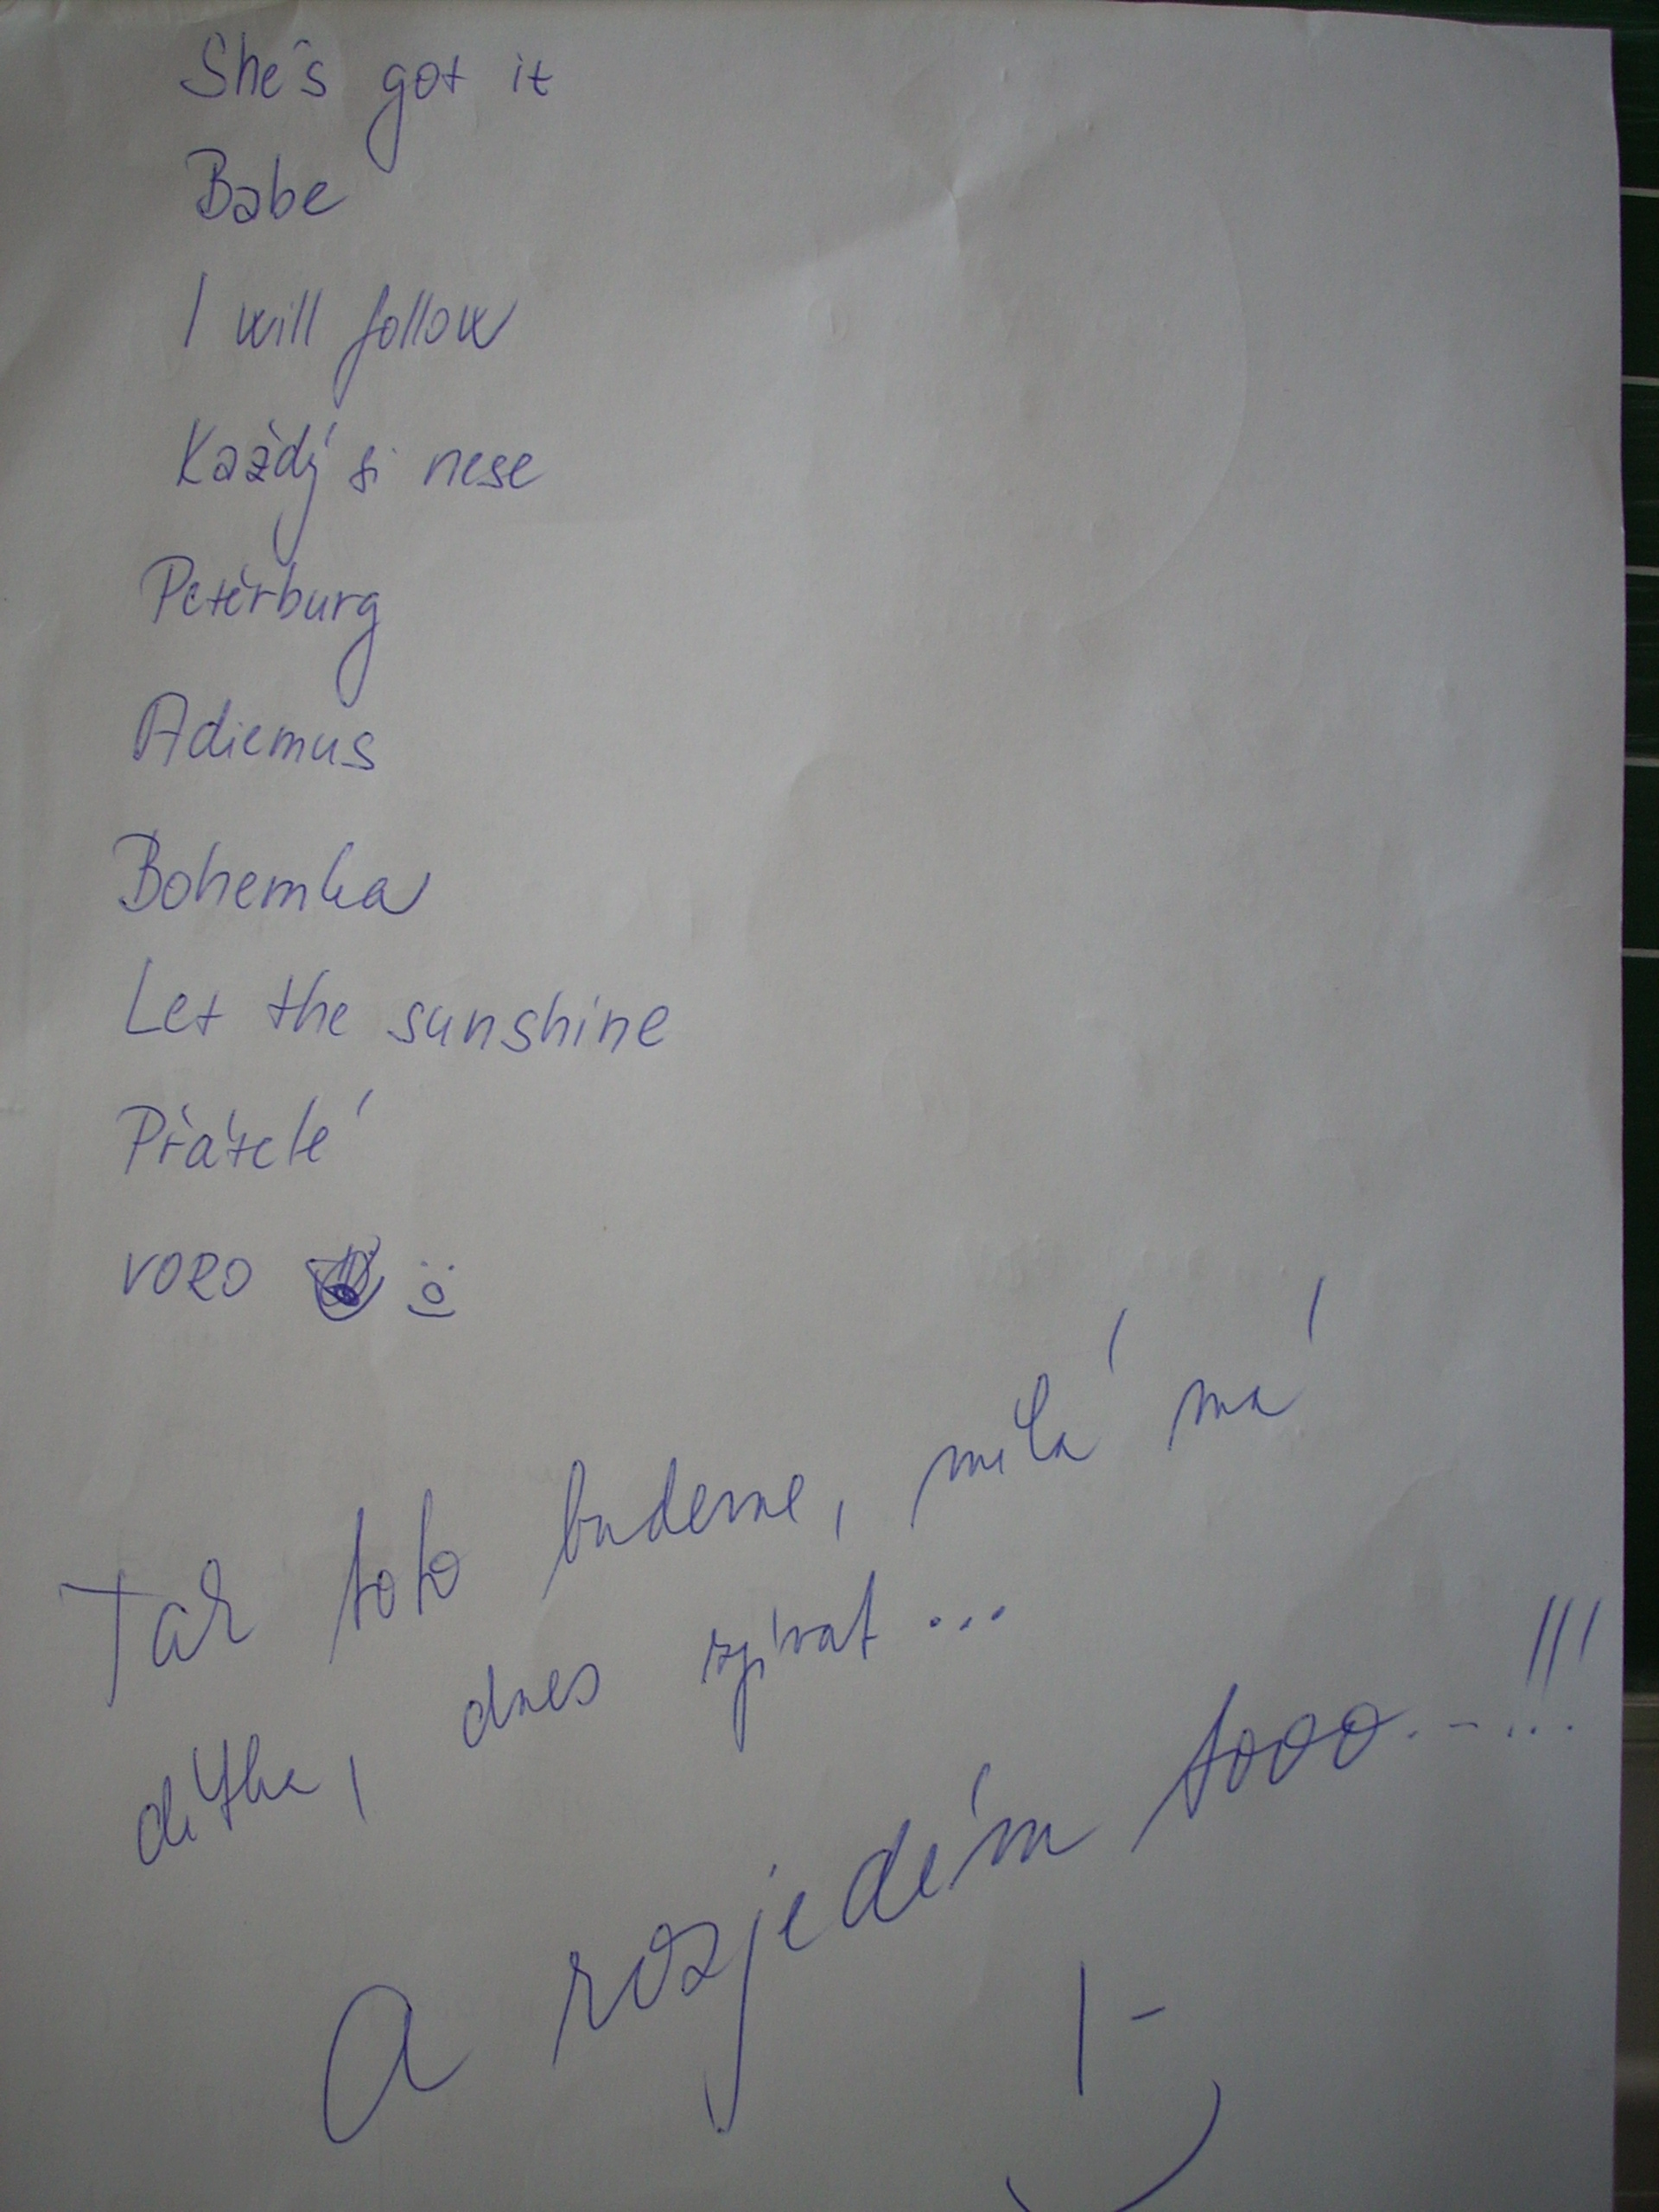 She's got it
Babe
I will follow
Každý si nese
Peterburg
Adiemus
Bohemka
Let the sunshine
Přátelé
VORO
Tak toto budeme, milá má
dítka, dnes zpívat ...
A rozjedém tooo...!!!